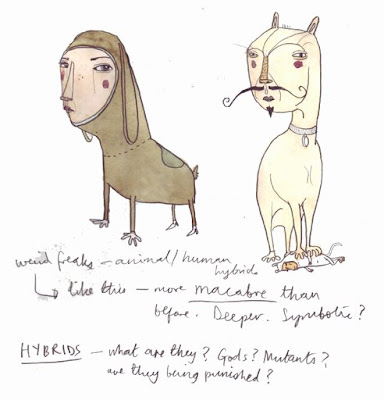 weird freaks – animal/human
hybrids
↳ like this – more macabre than
before. Deeper. Symbolic?
HYBRIDS – what are they? Gods? Mutants?
are they being punished?